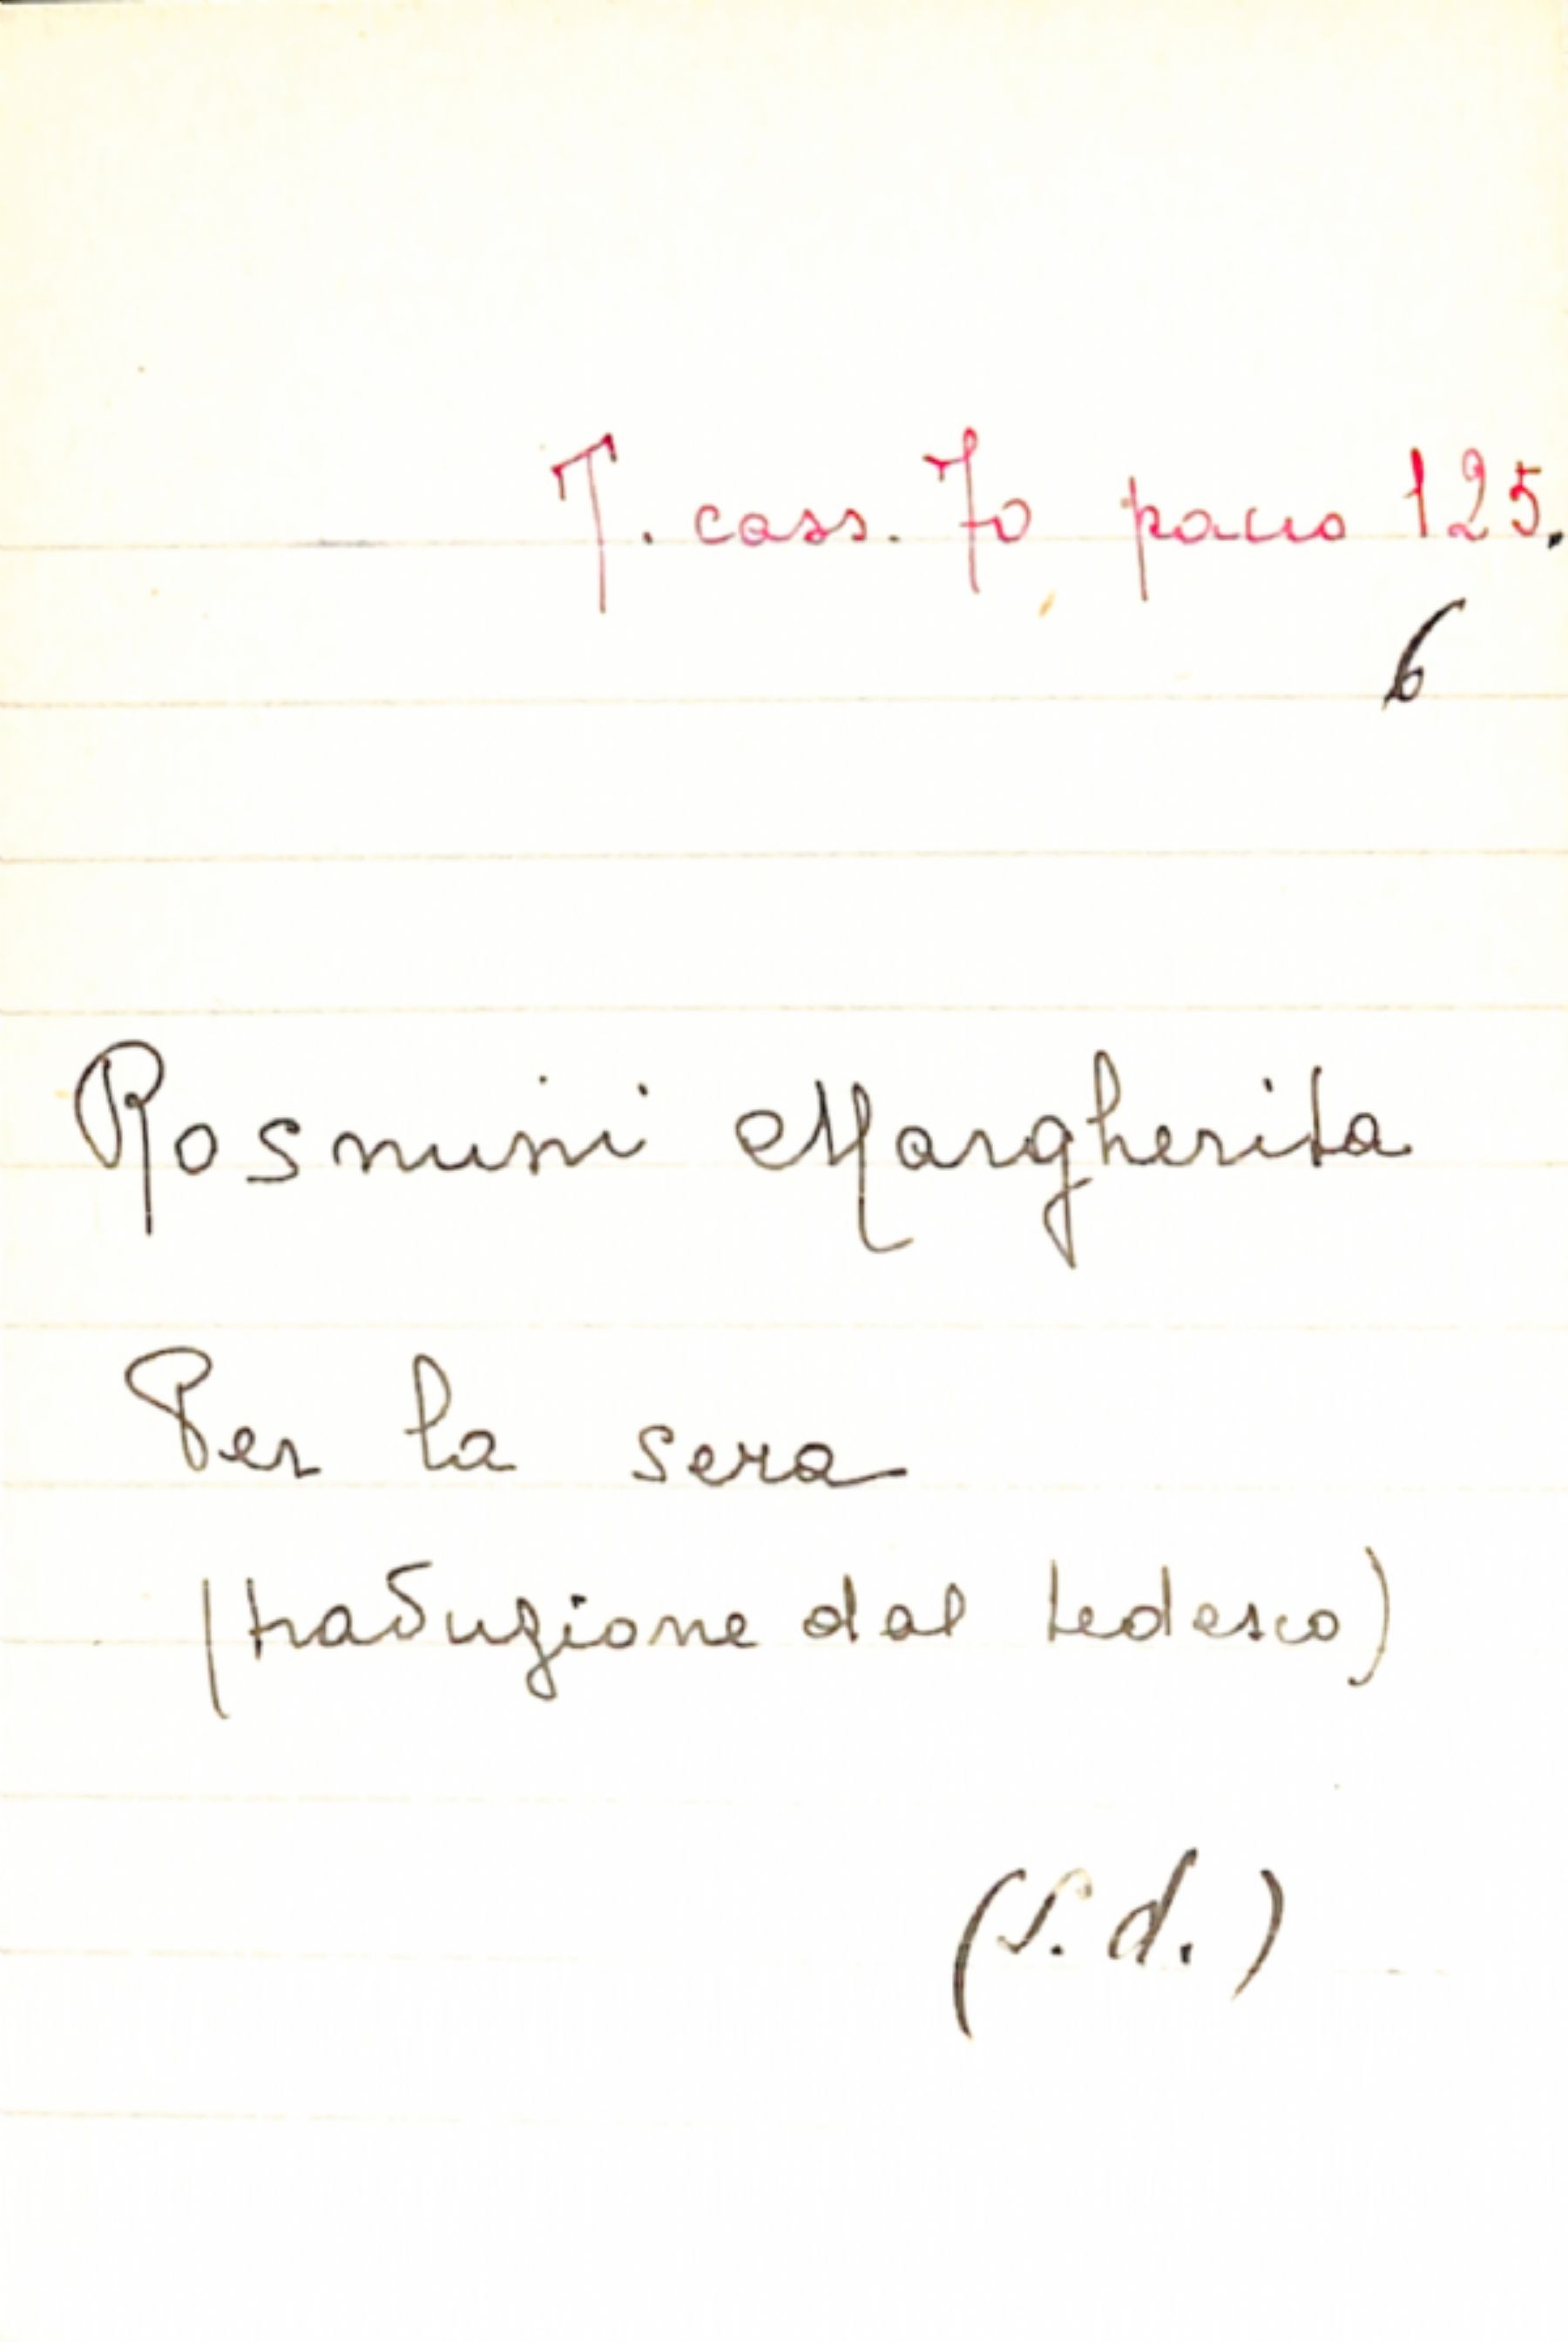 T. cass. 70 pacco 125.
6
Rosmini Margherita
Per la sera
(traduzione dal tedesco)
(s.d.)